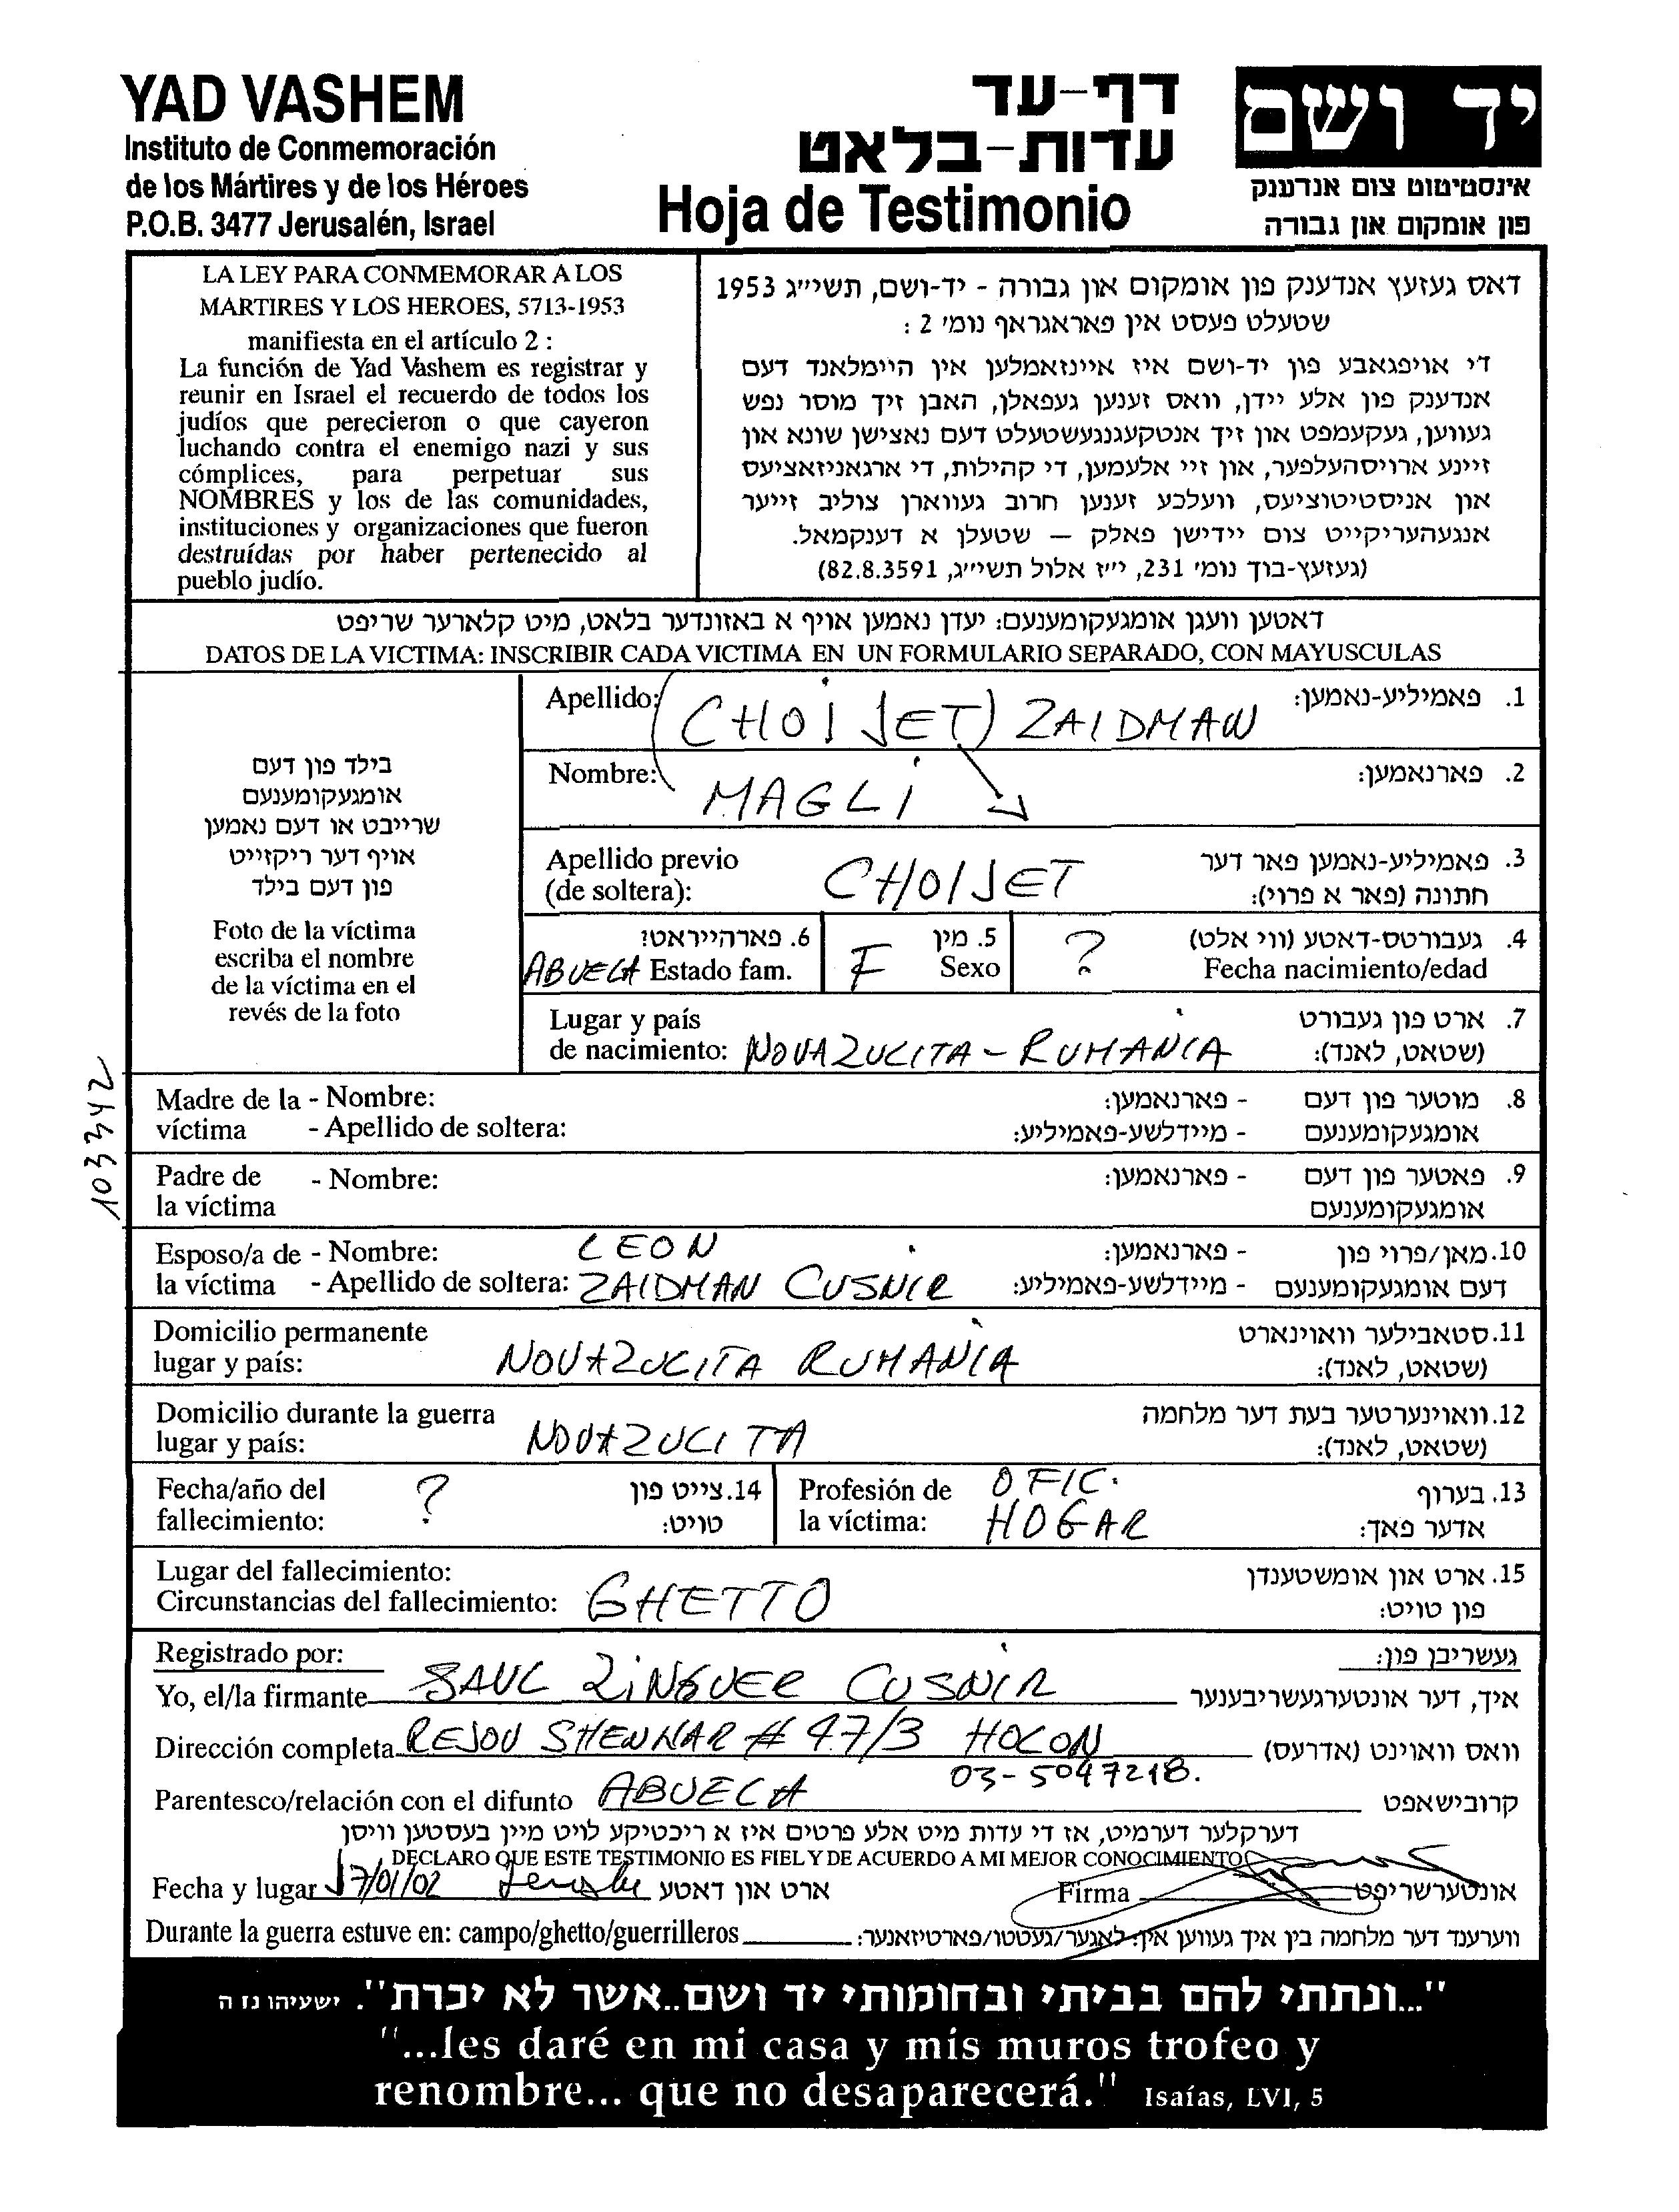 YAD VASHEM
Instituto de Conmemoración
de los Mártires y de los Héroes
P.O.B. 3477 Jerusalén, Israel
דף-עד
עדות-בלאט
Hoja de Testimonio
יד ושם
אינסטיטוט צום אנדענק
פון אומקום און גבורה
LA LEY PARA CONMEMORAR A LOS
MARTIRES Y LOS HEROES, 5713-1953
manifiesta en el artículo 2 :
La función de Yad Vashem es registrar y
reunir en Israel el recuerdo de todos los
judíos que perecieron o que cayeron
luchando contra el enemigo nazi y sus
cómplices, para perpetuar sus
NOMBRES y los de las comunidades,
instituciones y organizaciones que fueron
destruídas por haber pertenecido al
pueblo judío.
דאס געזעץ אנדענק פון אומקום און גבורה - יד-ושם, תשי״ג 1953
שטעלט פעסט אין פאראגראף נומ׳ 2 :
די אויפגאבע פון יד-ושם איז איינזאמלען אין היימלאנד דעם
אנדענק פון אלע יידן, וואס זענען געפאלן, האבן זיך מוסר נפש
געווען, געקעמפט און זיך אנטקעגנגעשטעלט דעם נאצישן שונא און
זיינע ארויסהעלפער, און זיי אלעמען, די קהילות, די ארגאניזאציעס
און אניסטיטוציעס, וועלכע זענען חרוב געווארן צוליב זייער
אנגעהעריקייט צום יידישן פאלק — שטעלן א דענקמאל.
(געזעץ-בוך נומ׳ 231, י״ז אלול תשי״ג, 82.8.3591)
דאטען וועגן אומגעקומענעם: יעדן נאמען אויף א באזונדער בלאט, מיט קלארער שריפט
DATOS DE LA VICTIMA: INSCRIBIR CADA VICTIMA EN UN FORMULARIO SEPARADO, CON MAYUSCULAS
בילד פון דעם
אומגעקומענעם
שרייבט או דעם נאמען
אויף דער ריקזייט
פון דעם בילד
Foto de la víctima
escriba el nombre
de la víctima en el
revés de la foto
103342
Apellido: (CHOIJET) ZAIDMAN 1. פאמיליע-נאמען:
Nombre: MAGLI 2. פארנאמען:
Apellido previo
(de soltera): CHOIJET 3. פאמיליע-נאמען פאר דער
חתונה (פאר א פרוי):
ABUELA 6. פארהייראט?
Estado fam.
F 5. מין
Sexo
? 4. געבורטס-דאטע (ווי אלט)
Fecha nacimiento/edad
Lugar y país
de nacimiento: NOVAZULITA - RUMANIA 7. ארט פון געבורט
(שטאט, לאנד):
Madre de la - Nombre: - פארנאמען: 8. מוטער פון דעם
víctima - Apellido de soltera: - מיידלשע-פאמיליע: אומגעקומענעם
Padre de - Nombre: - פארנאמען: 9. פאטער פון דעם
la víctima אומגעקומענעם
Esposo/a de - Nombre: LEON - פארנאמען: 10. מאן/פרוי פון
la víctima - Apellido de soltera: ZAIDMAN CUSNIR - מיידלשע-פאמיליע: דעם אומגעקומענעם
Domicilio permanente 11. סטאבילער וואוינארט
lugar y país: NOVAZULITA RUMANIA (שטאט, לאנד):
Domicilio durante la guerra 12. וואוינערטער בעת דער מלחמה
lugar y país: NOVAZULITA (שטאט, לאנד):
Fecha/año del
fallecimiento: ? 14. צייט פון
טויט:
Profesión de
la víctima: OFIC.
HOGAR 13. בערוף
אדער פאך:
Lugar del fallecimiento: 15. ארט און אומשטענדן
Circunstancias del fallecimiento: GHETTO פון טויט:
Registrado por: געשריבן פון:
Yo, el/la firmante SAUL ZINGUER CUSNIR איך, דער אונטערגעשריבענער
Dirección completa REJOV SHENKAR # 47/3 HOLON וואס וואוינט (אדרעס)
03-5047218.
Parentesco/relación con el difunto ABUELA קרובישאפט
דערקלער דערמיט, אז די עדות מיט אלע פרטים איז א ריכטיקע לויט מיין בעסטען וויסן
DECLARO QUE ESTE TESTIMONIO ES FIEL Y DE ACUERDO A MI MEJOR CONOCIMIENTO
Fecha y lugar 17/01/02 ארט און דאטע Firma אונטערשריפט
Durante la guerra estuve en: campo/ghetto/guerrilleros ווערענד דער מלחמה בין איך געווען אין: לאגער/געטטו/פארטיזאנער:
"...ונתתי להם בביתי ובחומותי יד ושם..אשר לא יכרת". ישעיהו נז ה
"...les daré en mi casa y mis muros trofeo y
renombre... que no desaparecerá." Isaías, LVI, 5